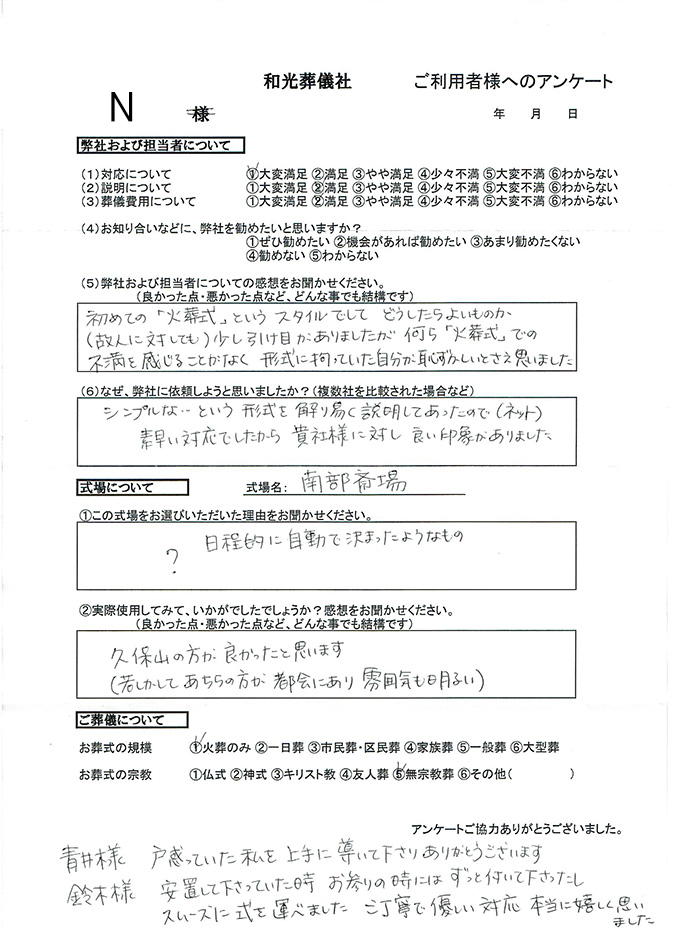 和光葬儀社 ご利用者様へのアンケート
N 様
年 月 日
弊社および担当者について
(1)対応について ①大変満足 ②満足 ③やや満足 ④少々不満 ⑤大変不満 ⑥わからない
(2)説明について ①大変満足 ②満足 ③やや満足 ④少々不満 ⑤大変不満 ⑥わからない
(3)葬儀費用について ①大変満足 ②満足 ③やや満足 ④少々不満 ⑤大変不満 ⑥わからない
(4)お知り合いなどに、弊社を勧めたいと思いますか?
①ぜひ勧めたい ②機会があれば勧めたい ③あまり勧めたくない
④勧めない ⑤わからない
(5)弊社および担当者についての感想をお聞かせください。
(良かった点・悪かった点など、どんな事でも結構です)
初めての「火葬式」という スタイルでして どうしたらよいものか
(故人に対しても)少し引け目がありましたが 何ら「火葬式」での
不満を感じることがなく 形式に拘っていた自分が恥ずかしいとさえ思いました
(6)なぜ、弊社に依頼しようと思いましたか?(複数社を比較された場合など)
シンプルな‥という 形式を 解り易く説明してあったので(ネット)
素早い対応でしたから 貴社様に対し 良い印象がありました
式場について 式場名: 南部斎場
①この式場をお選びいただいた理由をお聞かせください。
日程的に自動で決まったようなもの
?
②実際使用してみて、いかがでしたでしょうか?感想をお聞かせください。
(良かった点・悪かった点など、どんな事でも結構です)
久保山の方が 良かったと思います
(若しかして あちらの方が 都会にあり 雰囲気も明るい)
ご葬儀について
お葬式の規模 ①火葬のみ ②一日葬 ③市民葬・区民葬 ④家族葬 ⑤一般葬 ⑥大型葬
お葬式の宗教 ①仏式 ②神式 ③キリスト教 ④友人葬 ⑤無宗教葬 ⑥その他( )
アンケートご協力ありがとうございました。
青井様 戸惑っていた私を 上手に 導いて下さりありがとうございます
鈴木様 安置して下さっていた時 お参りの時には ずっと付いて下さったし
スムーズに式を運べました ご丁寧で優しい対応 本当に嬉しく思い
ました